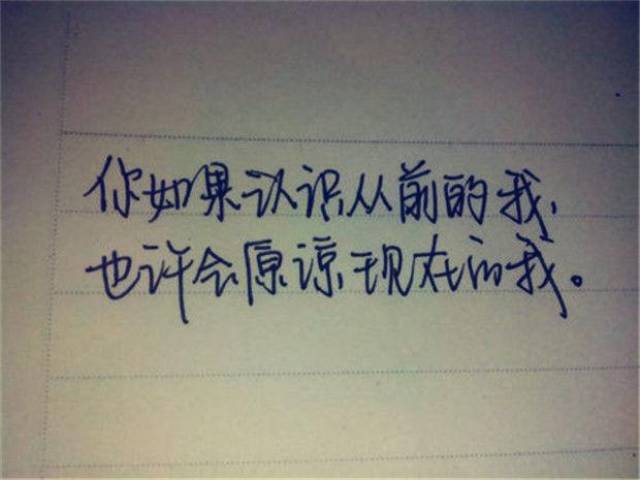 你如果认识从前的我,
也许会原谅现在的我。